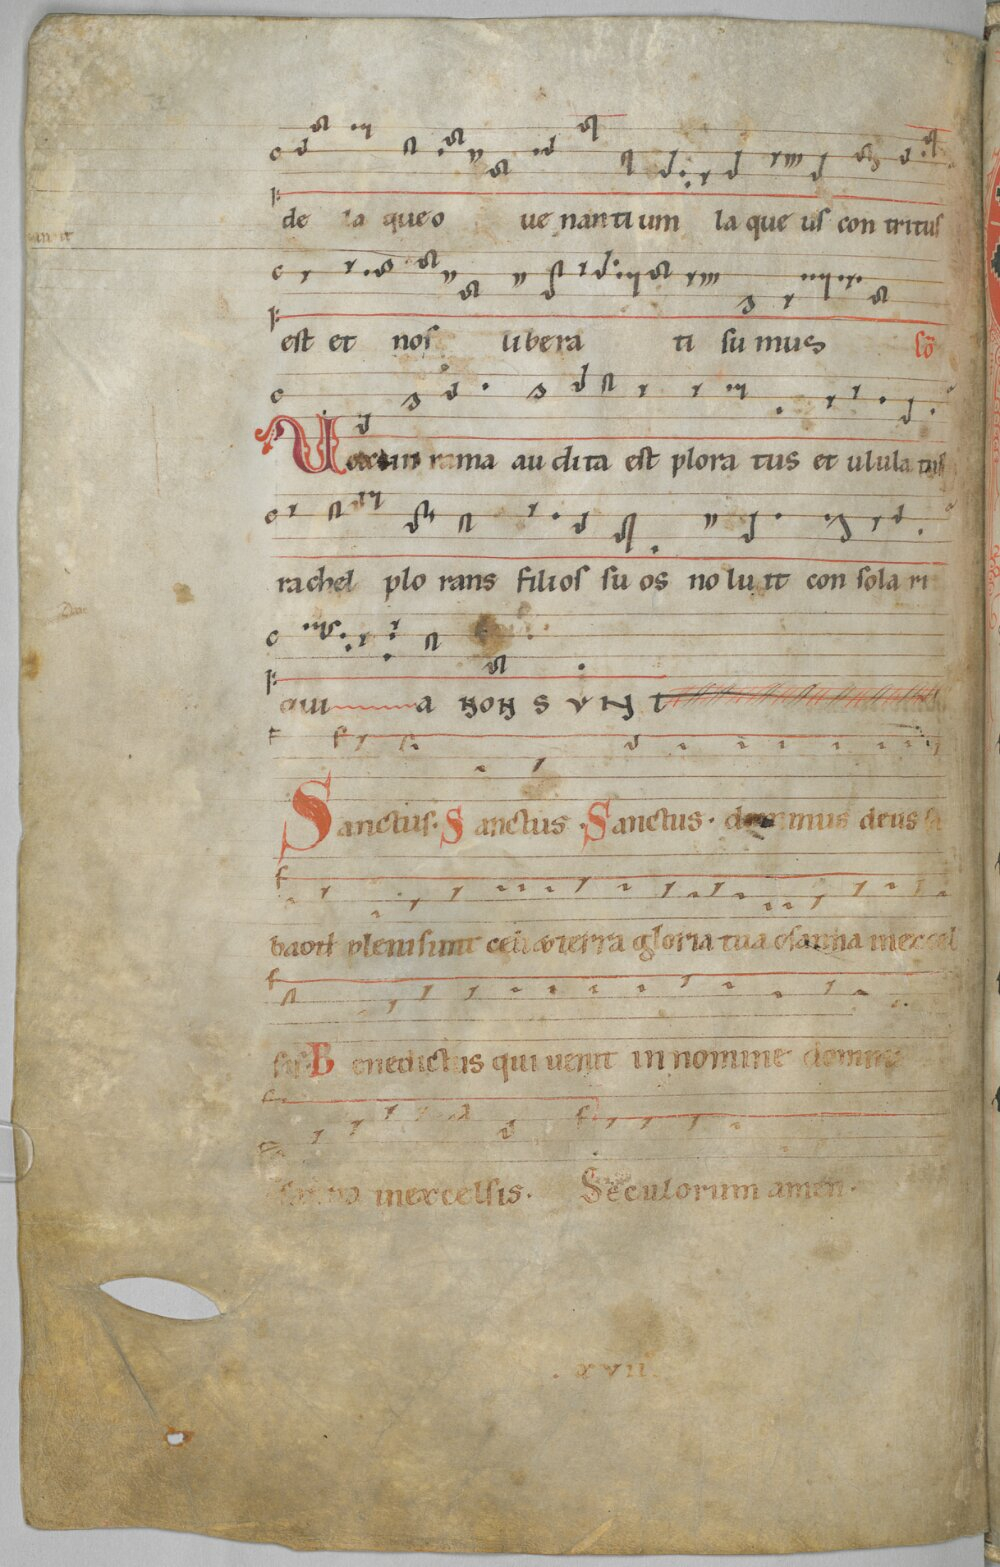 de la queo ue nantium la que us con tritus
est et nos libera ti su mus cō
Uox in rama au dita est plora tus et ulula tus
rachel plo rans filios su os no lu it con sola ri
qui a non sunt
Sanctus. Sanctus. Sanctus. dominus deus sa
baoth pleni sunt celi & terra gloria tua osanna in excel
sis. Benedictus qui uenit in nomine domini
in excelsis. Seculorum amen.
. xvii.